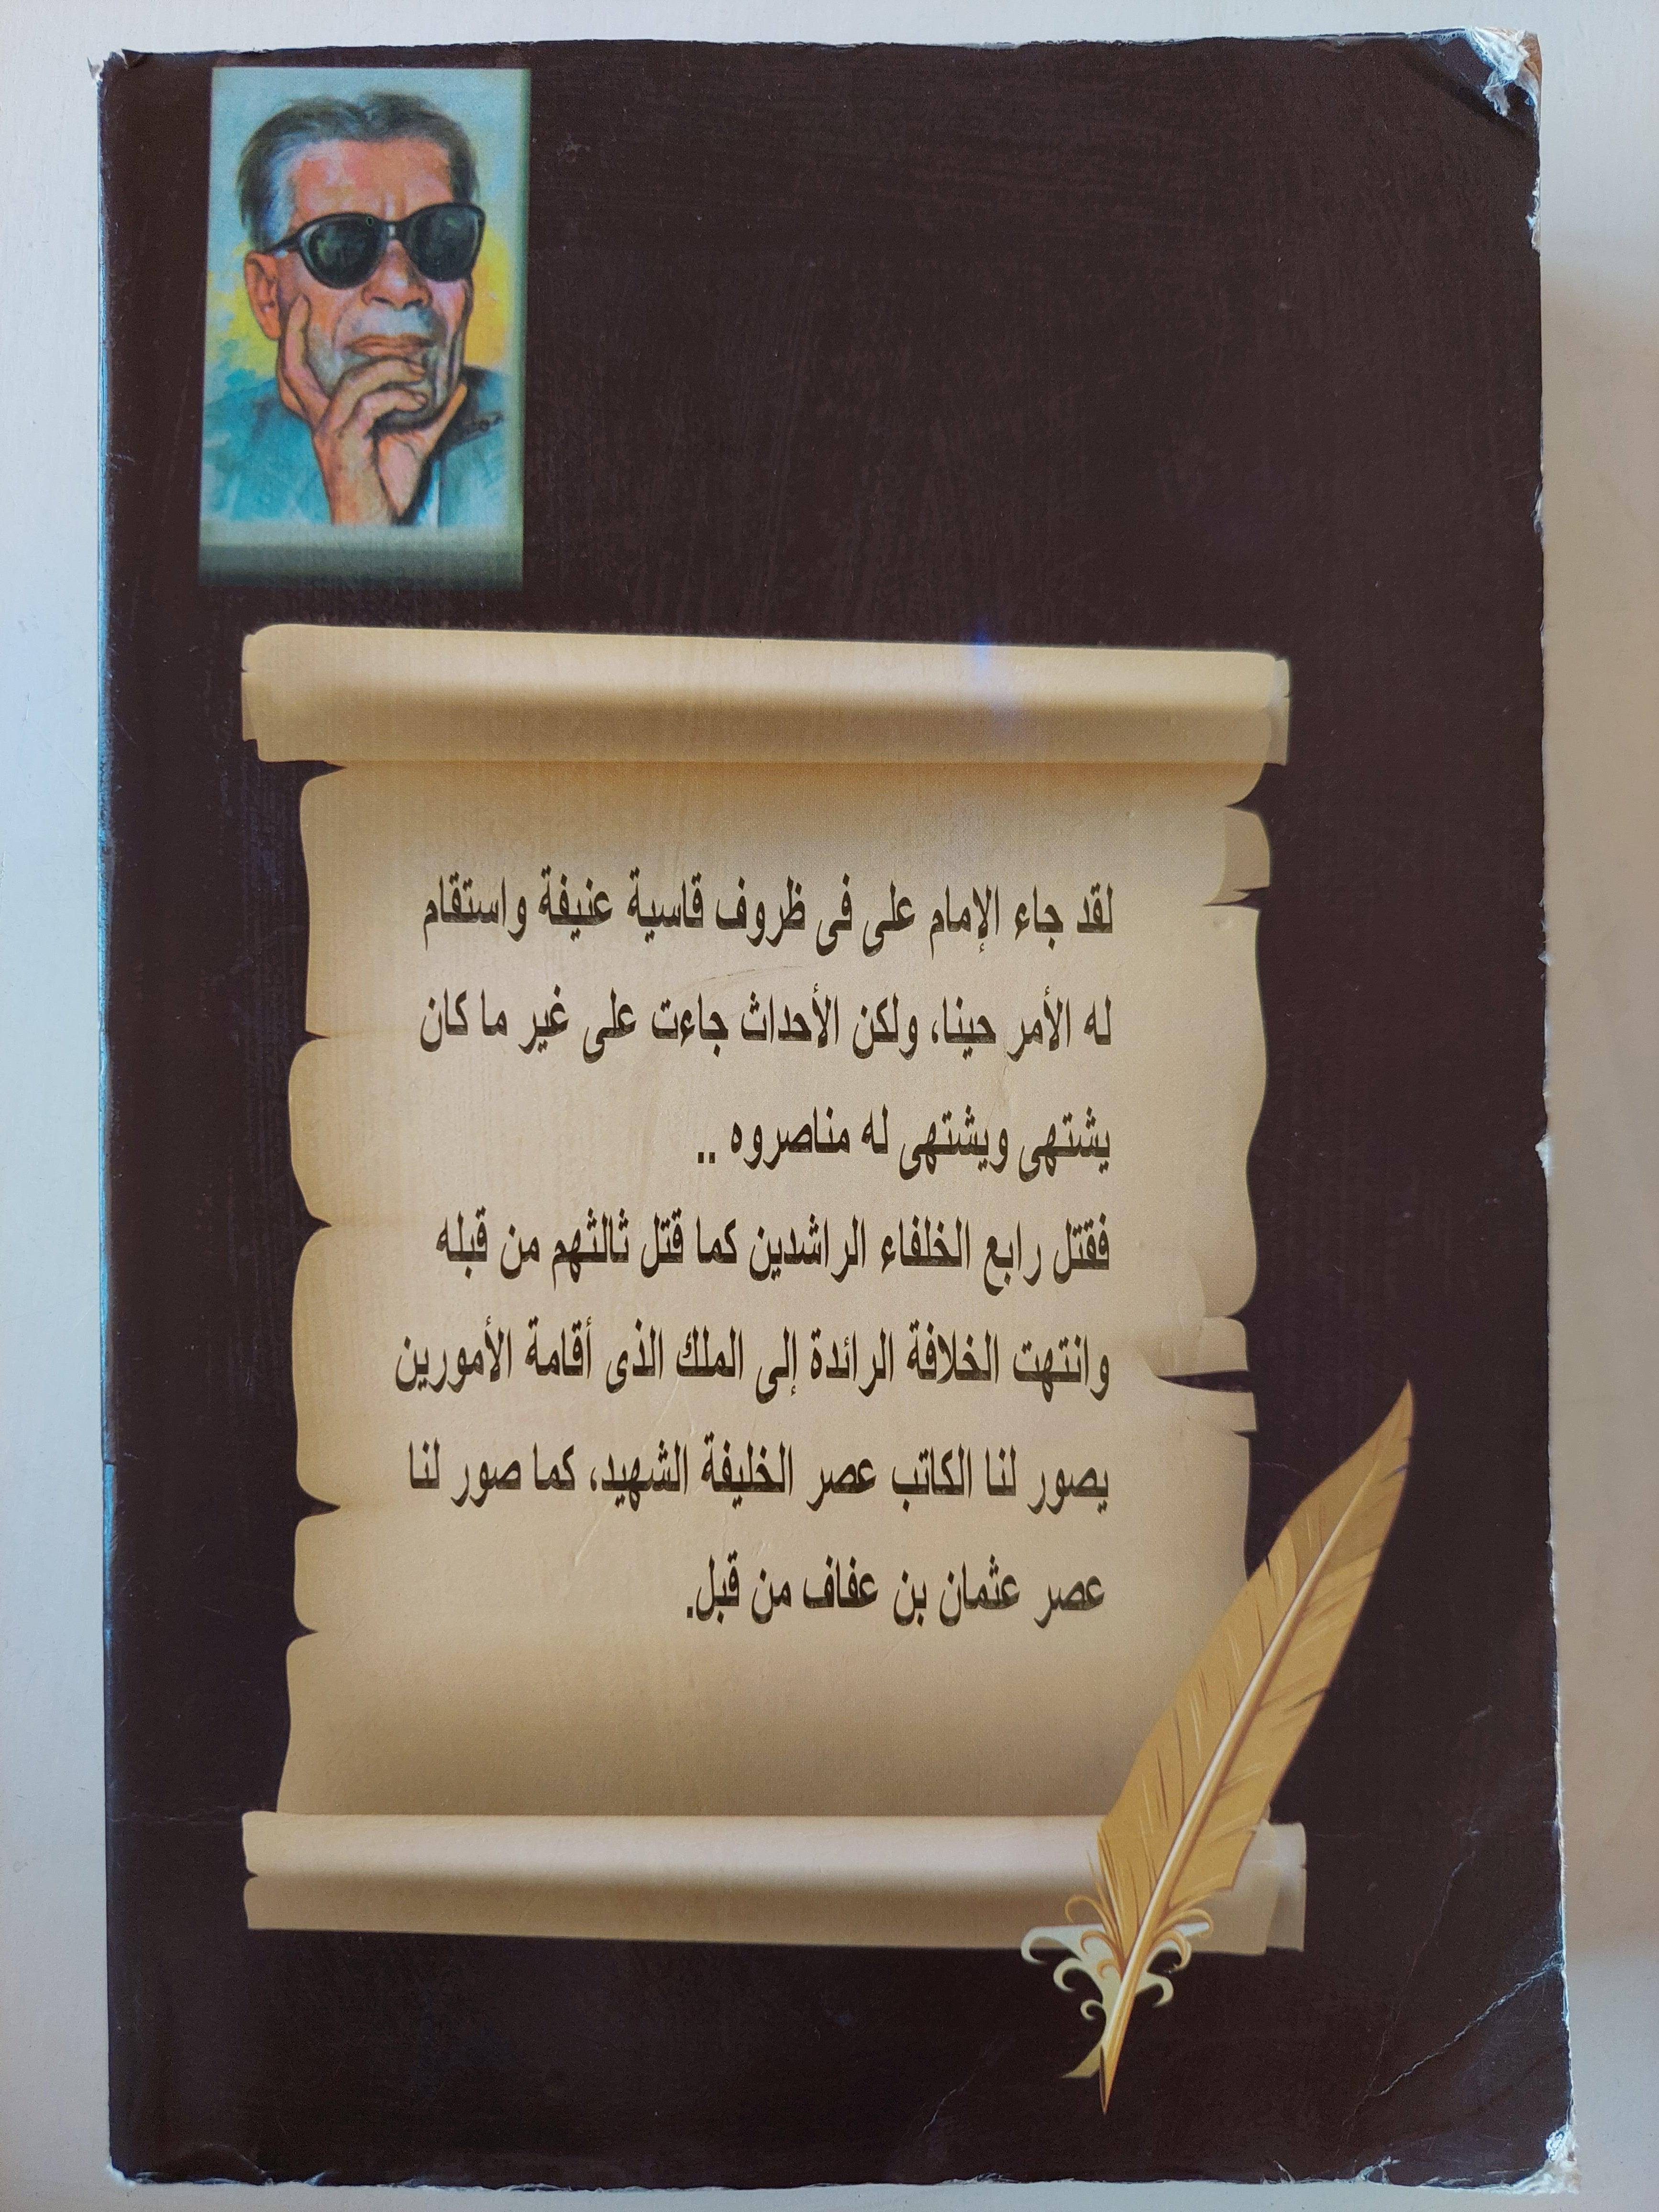 لقد جاء الإمام على فى ظروف قاسية عنيفة واستقام
له الأمر حينا، ولكن الأحداث جاءت على غير ما كان
يشتهى ويشتهى له مناصروه ..
فقتل رابع الخلفاء الراشدين كما قتل ثالثهم من قبله
وانتهت الخلافة الرائدة إلى الملك الذى أقامة الأمورين
يصور لنا الكاتب عصر الخليفة الشهيد، كما صور لنا
عصر عثمان بن عفاف من قبل.